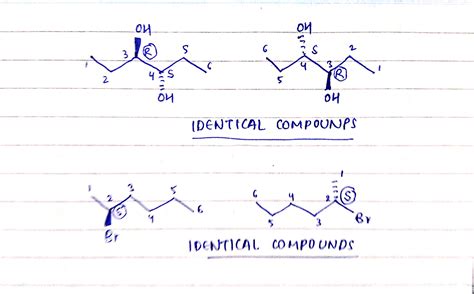 OH OH
6 5 3 R 4 S 6 4 S 3 R 2
1 2 OH 5 OH 1
IDENTICAL COMPOUNPS
1 2 3 5 6 4 2 S 1
S Br 4 6 5 3 Br
IDENTICAL COMPOUNDS